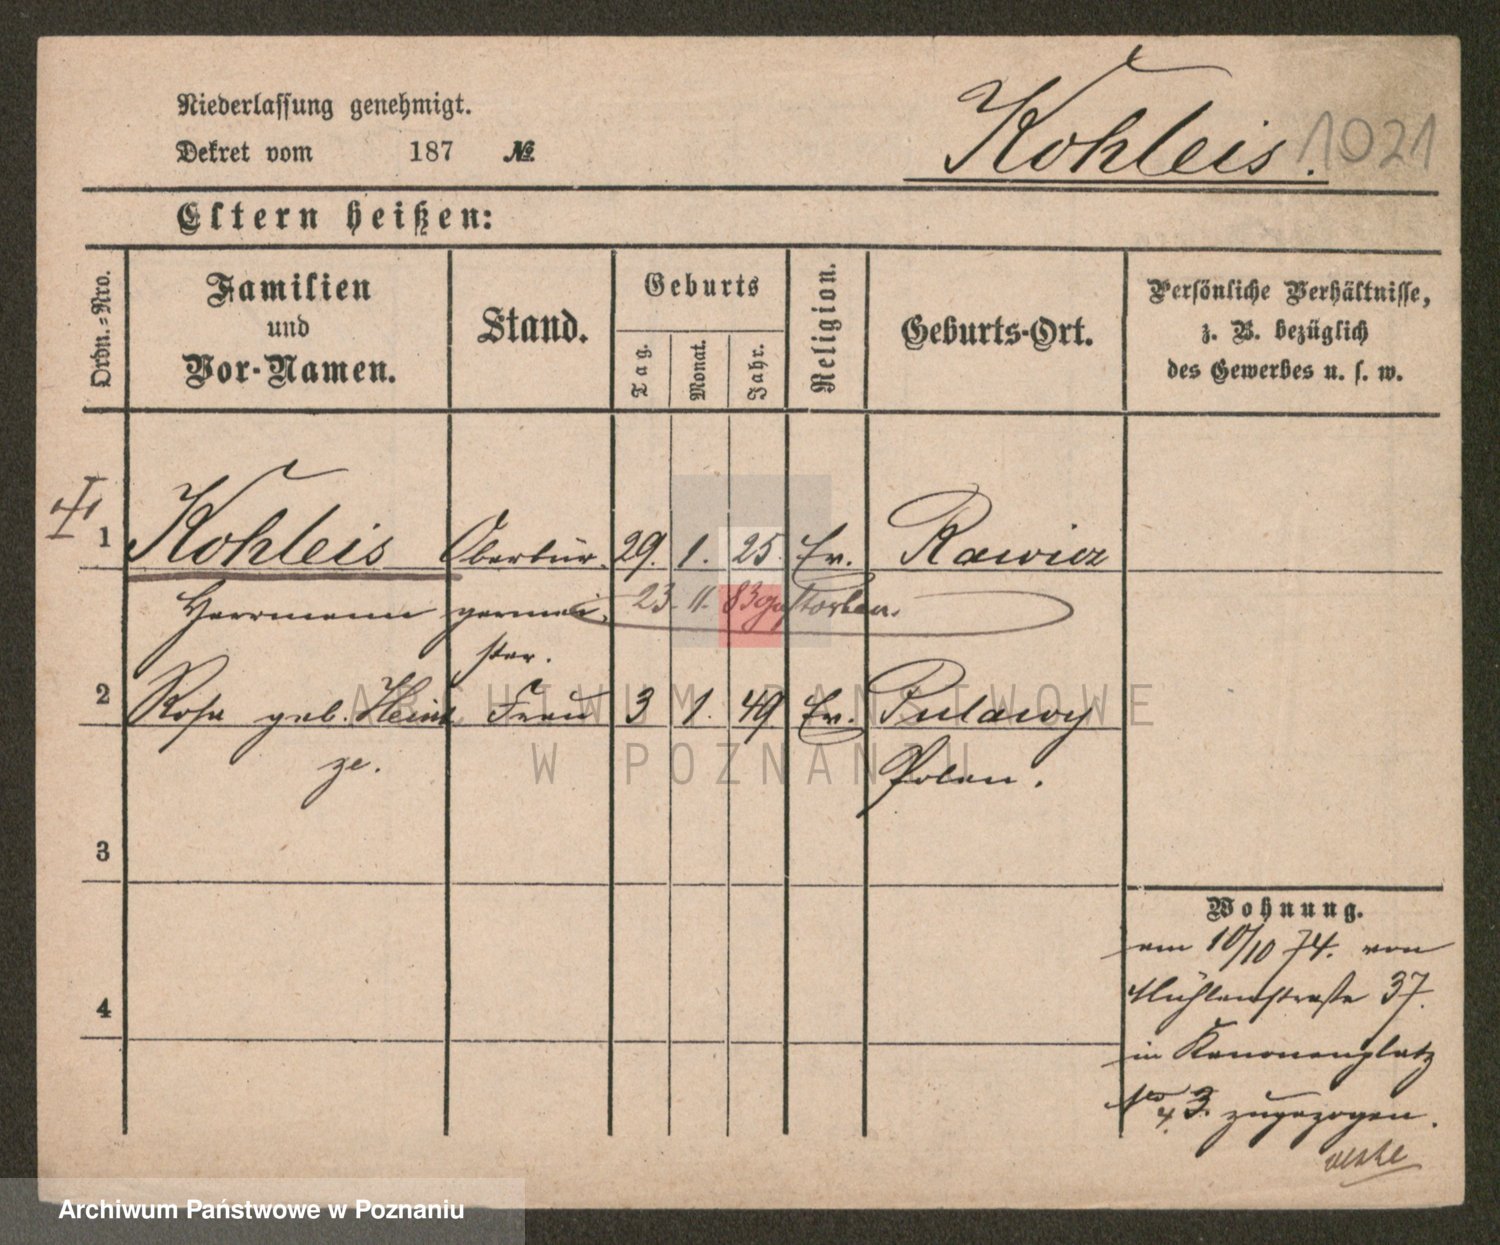 Niederlassung genehmigt.
Dekret vom 187 №
Kohleis. 1021
Eltern heißen:
Ordn.-Nro.
Familien
und
Vor-Namen.
Stand.
Geburts
Tag.
Monat.
Jahr.
Religion.
Geburts-Ort.
Persönliche Verhältnisse,
z. B. bezüglich
des Gewerbes u. s. w.
1 Kohleis Oberbür- 29. 1. 25. Ev. Rawicz
Herrmann germei- 23. 11. 83 gestorben.
ster.
2 Rosa geb. Hein Frau 3 1. 49 Ev. Pulawy
ze. Polen.
3
4
Wohnung.
am 10/10 74. von
Mühlenstraße 37.
in Kanonenplatz
No 3. zugezogen.
ARCHIWUM PAŃSTWOWE
W POZNANIU
Archiwum Państwowe w Poznaniu